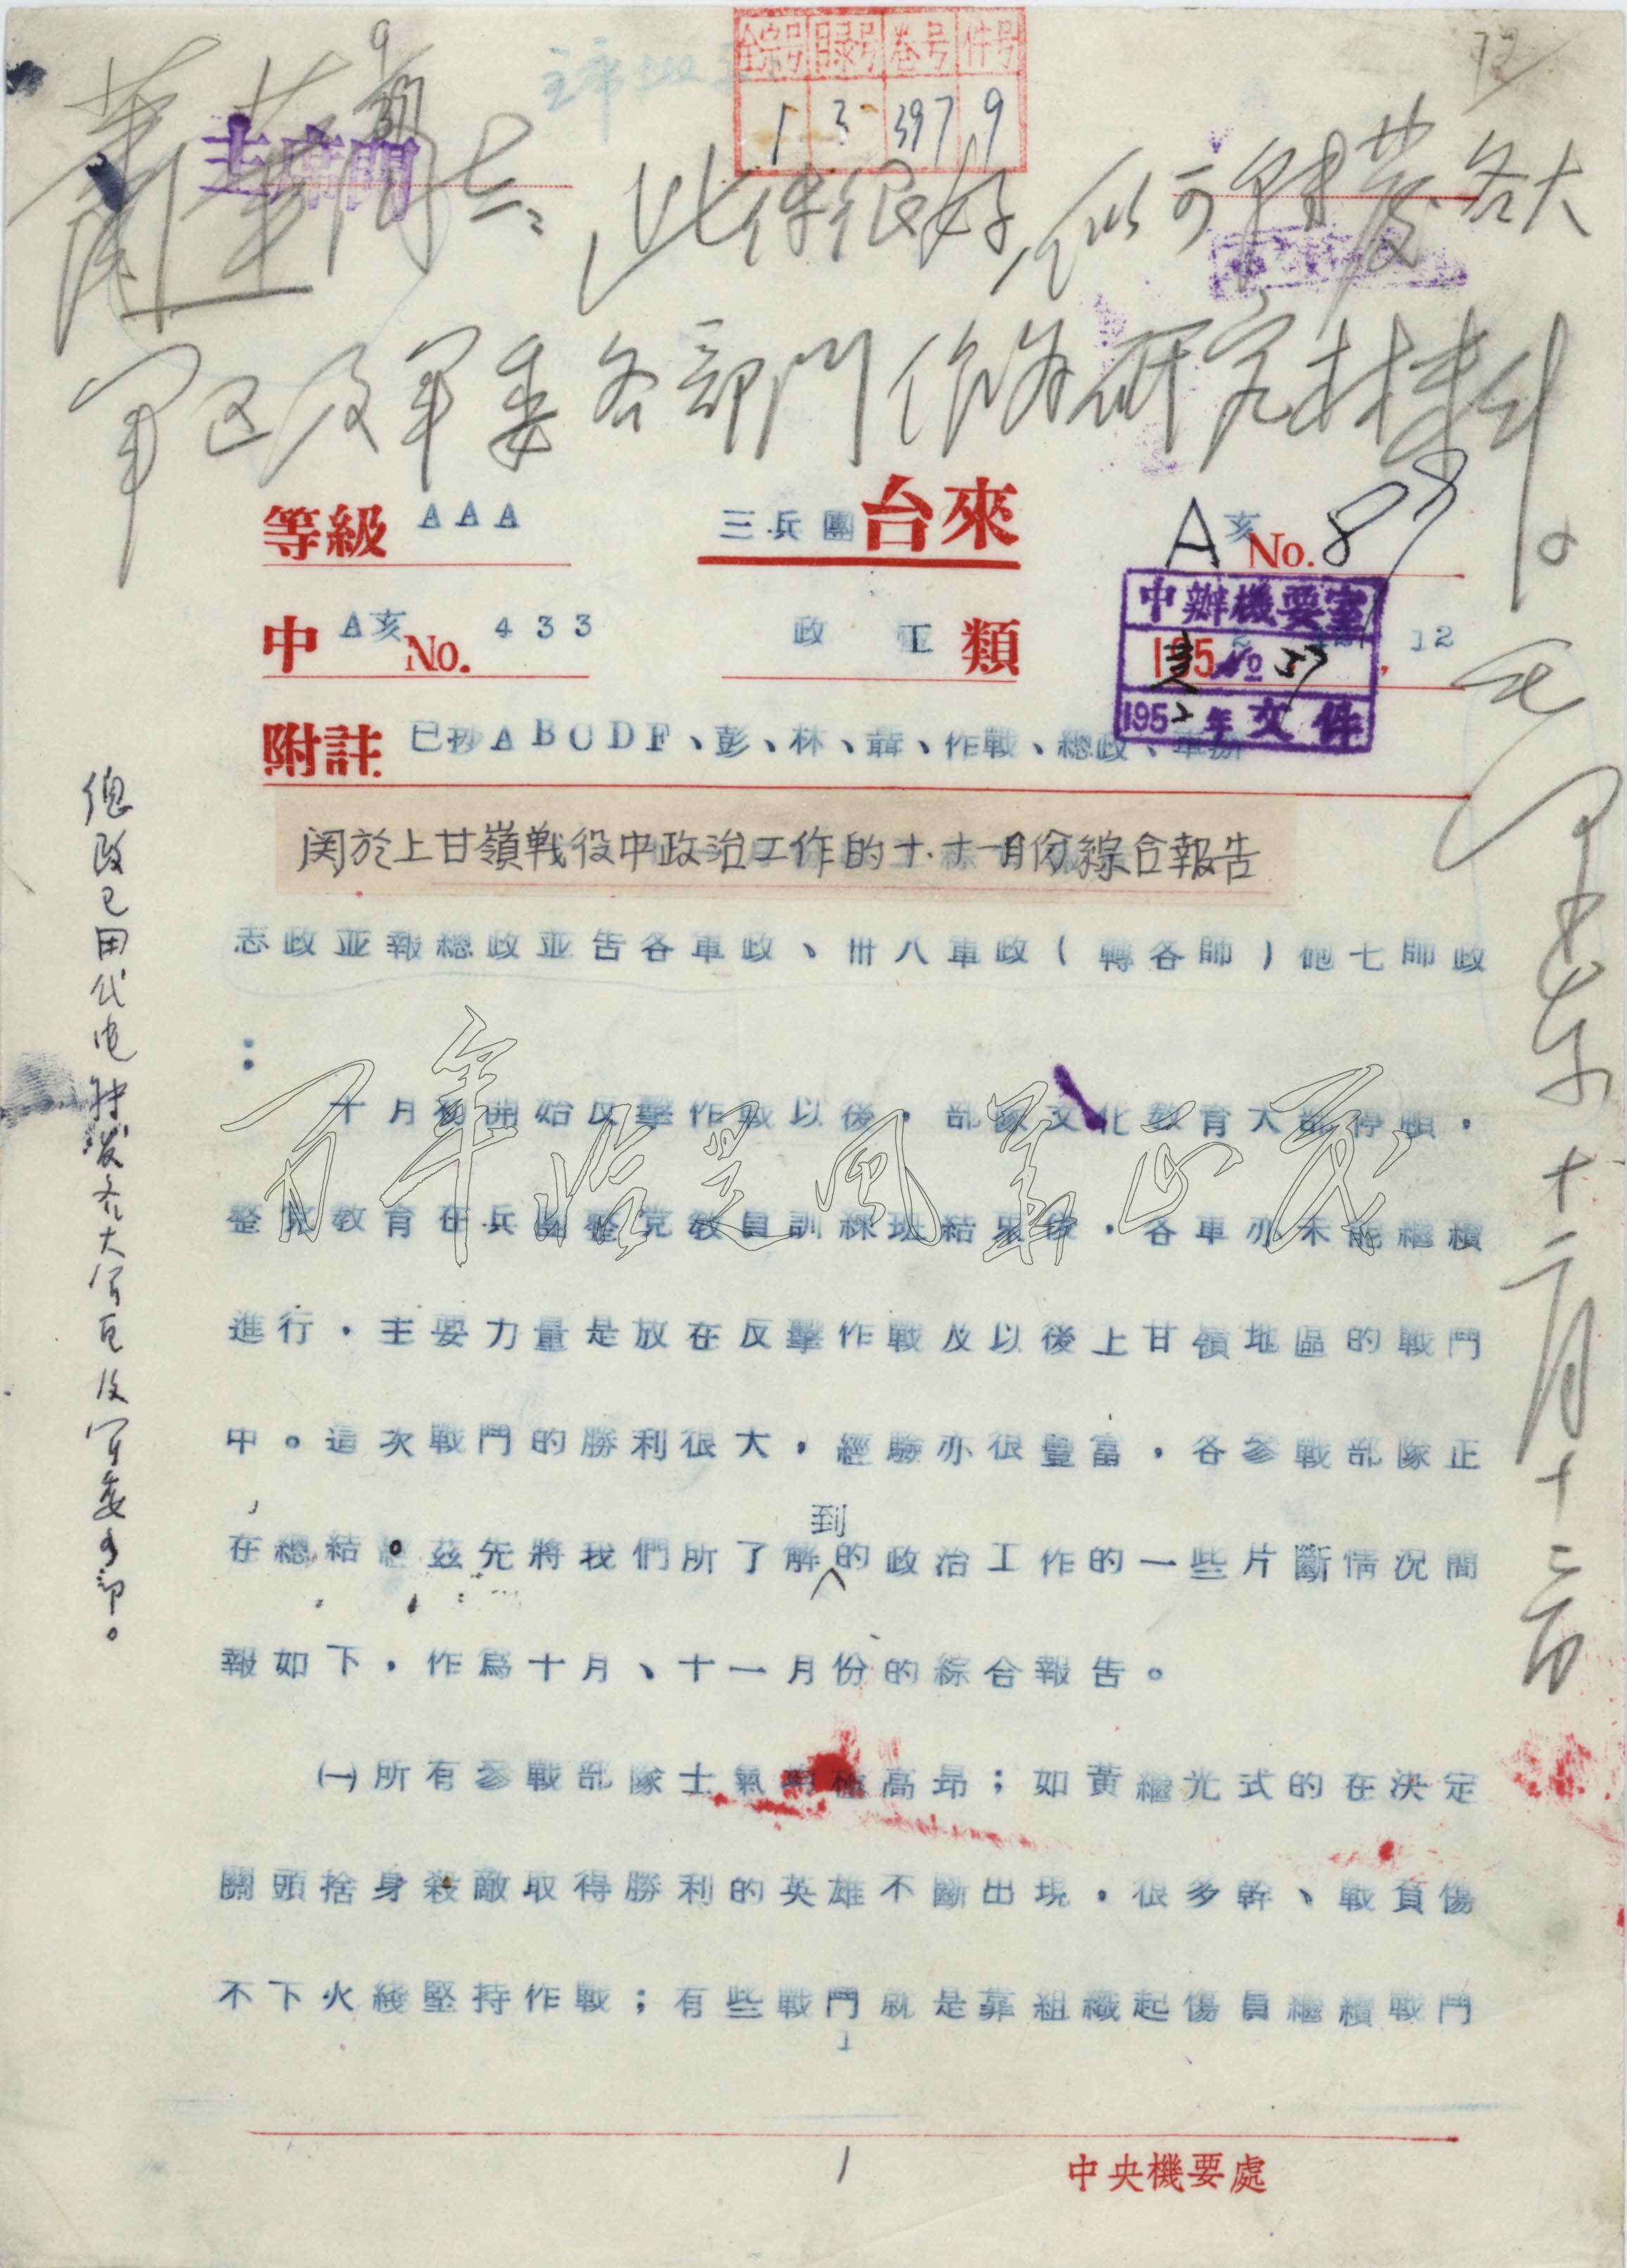 全宗号 目录号 卷号 件号
1 3 397 9
主席閱
蕭華同志：此件很好，似可轉發各大
軍区及軍委各部門作為研究材料。
毛澤东
十二月十三日
等級 AAA 三兵團台來 A亥No. 87
中 A亥No. 433 政工類 12
中辦機要室
1952年文件
附註 已抄ABCDF、彭、林、聶、作戰、總政、軍辦
関於上甘嶺戰役中政治工作的十.十一月份綜合報告
志政並報總政並告各軍政、卅八軍政（轉各師）砲七師政
：
十月初開始反擊作战以後，部隊文化教育大部停頓，
整党教育在兵團整党教員訓練班結束後，各軍亦未能繼續
進行，主要力量是放在反擊作戰及以後上甘嶺地區的戰鬥
中。這次戰鬥的勝利很大，經驗亦很豐富，各參戰部隊正
在總結。茲先將我們所了解到的政治工作的一些片斷情況簡
報如下，作爲十月、十一月份的綜合報告。
㈠所有參戰部隊士氣極高昂；如黃繼光式的在決定
關頭捨身殺敵取得勝利的英雄不斷出現，很多幹、戰負傷
不下火綫堅持作戰；有些戰鬥就是靠組織起傷員繼續戰鬥
1
1
中央機要處
總政已用代电转发各大军区及军委各部。
百年恰是風華正茂